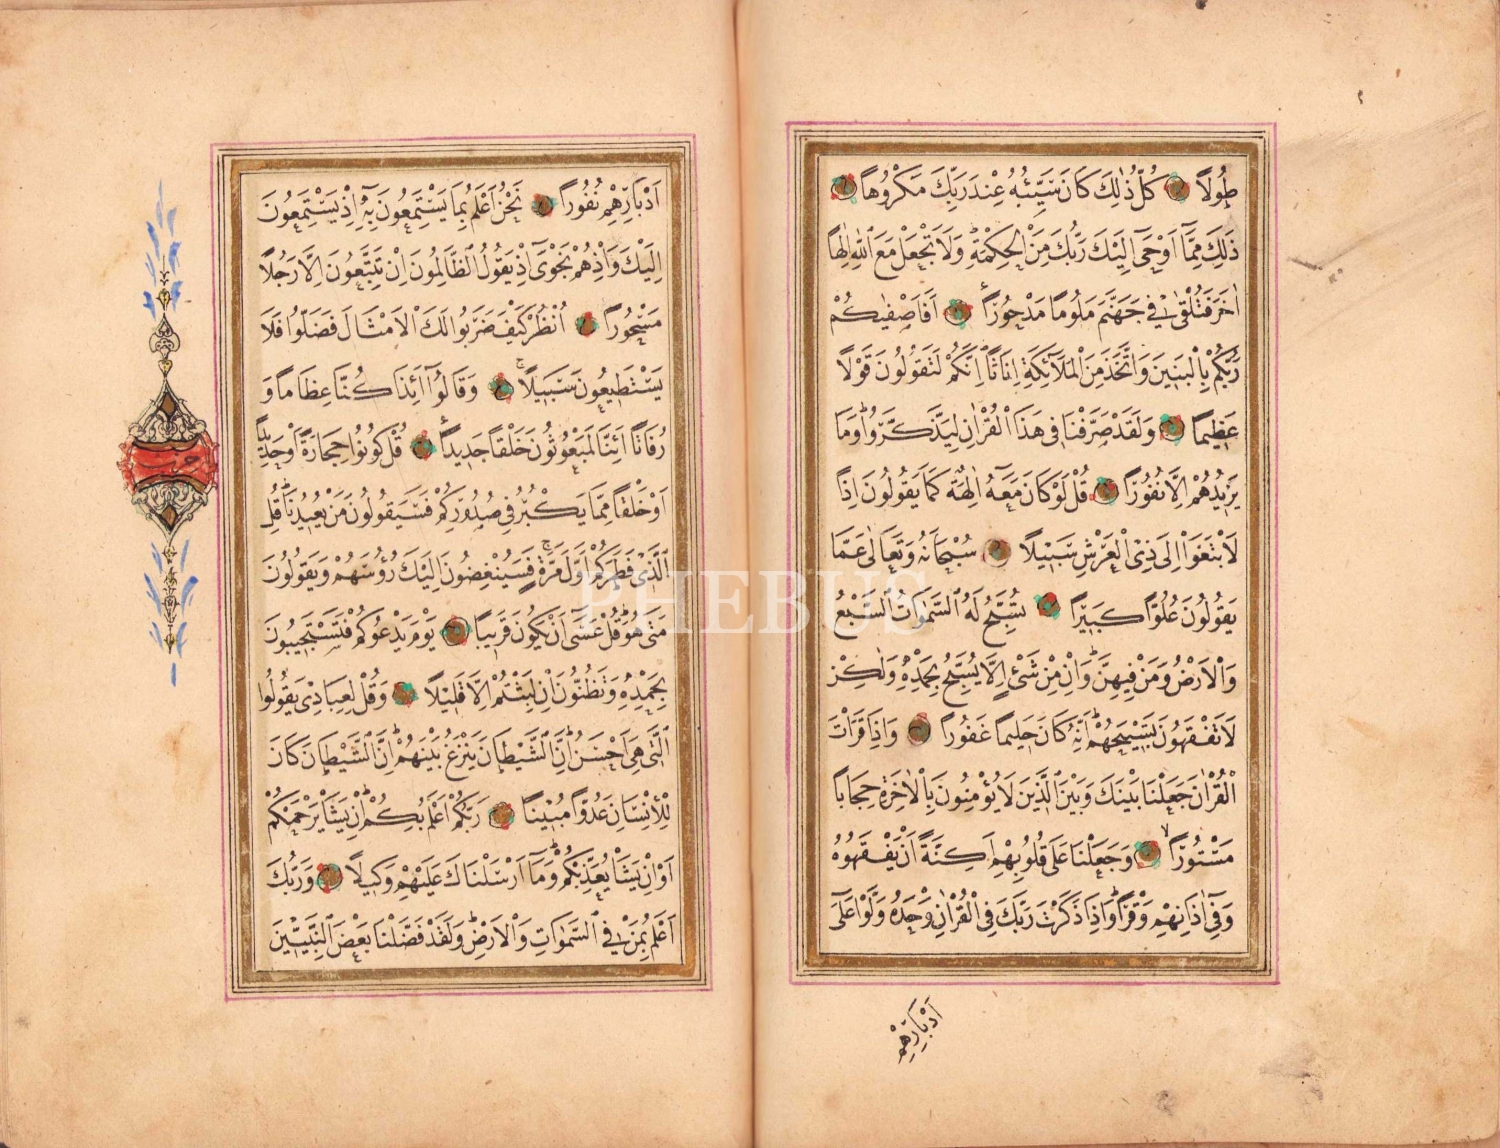 طُولًا كُلُّ ذٰلِكَ كَانَ سَيِّئُهُ عِنْدَ رَبِّكَ مَكْرُوهًا
ذٰلِكَ مِمَّٓا اَوْحٰٓى اِلَيْكَ رَبُّكَ مِنَ الْحِكْمَةِ وَلَا تَجْعَلْ مَعَ اللّٰهِ اِلٰهًا
اٰخَرَ فَتُلْقٰى فِي جَهَنَّمَ مَلُومًا مَدْحُورًا اَفَاَصْفٰيكُمْ
رَبُّكُمْ بِالْبَنِينَ وَاتَّخَذَ مِنَ الْمَلٰٓئِكَةِ اِنَاثًا اِنَّكُمْ لَتَقُولُونَ قَوْلًا
عَظِيمًا وَلَقَدْ صَرَّفْنَا فِي هٰذَا الْقُرْاٰنِ لِيَذَّكَّرُوا وَمَا
يَزِيدُهُمْ اِلَّا نُفُورًا قُلْ لَوْ كَانَ مَعَهُٓ اٰلِهَةٌ كَمَا يَقُولُونَ اِذًا
لَابْتَغَوْا اِلٰى ذِي الْعَرْشِ سَبِيلًا سُبْحَانَهُ وَتَعَالٰى عَمَّا
يَقُولُونَ عُلُوًّا كَبِيرًا تُسَبِّحُ لَهُ السَّمٰوَاتُ السَّبْعُ
وَالْاَرْضُ وَمَنْ فِيهِنَّ وَاِنْ مِنْ شَيْءٍ اِلَّا يُسَبِّحُ بِحَمْدِهِ وَلٰكِنْ
لَا تَفْقَهُونَ تَسْبِيحَهُمْ اِنَّهُ كَانَ حَلِيمًا غَفُورًا وَاِذَا قَرَاْتَ
الْقُرْاٰنَ جَعَلْنَا بَيْنَكَ وَبَيْنَ الَّذِينَ لَا يُؤْمِنُونَ بِالْاٰخِرَةِ حِجَابًا
مَسْتُورًا وَجَعَلْنَا عَلٰى قُلُوبِهِمْ اَكِنَّةً اَنْ يَفْقَهُوهُ
وَفِٓي اٰذَانِهِمْ وَقْرًا وَاِذَا ذَكَرْتَ رَبَّكَ فِي الْقُرْاٰنِ وَحْدَهُ وَلَّوْا عَلٰٓى
اَدْبَارِهِمْ
اَدْبَارِهِمْ نُفُورًا نَحْنُ اَعْلَمُ بِمَا يَسْتَمِعُونَ بِهِٓ اِذْ يَسْتَمِعُونَ
اِلَيْكَ وَاِذْ هُمْ نَجْوٰٓى اِذْ يَقُولُ الظَّالِمُونَ اِنْ تَتَّبِعُونَ اِلَّا رَجُلًا
مَسْحُورًا اُنْظُرْ كَيْفَ ضَرَبُوا لَكَ الْاَمْثَالَ فَضَلُّوا فَلَا
يَسْتَطِيعُونَ سَبِيلًا وَقَالُٓوا ءَاِذَا كُنَّا عِظَامًا وَ
رُفَاتًا ءَاِنَّا لَمَبْعُوثُونَ خَلْقًا جَدِيدًا قُلْ كُونُوا حِجَارَةً اَوْ حَدِيدًا
اَوْ خَلْقًا مِمَّا يَكْبُرُ فِي صُدُورِكُمْ فَسَيَقُولُونَ مَنْ يُعِيدُنَا قُلِ
الَّذِي فَطَرَكُمْ اَوَّلَ مَرَّةٍ فَسَيُنْغِضُونَ اِلَيْكَ رُؤُسَهُمْ وَيَقُولُونَ
مَتٰى هُوَ قُلْ عَسٰٓى اَنْ يَكُونَ قَرِيبًا يَوْمَ يَدْعُوكُمْ فَتَسْتَجِيبُونَ
بِحَمْدِهِ وَتَظُنُّونَ اِنْ لَبِثْتُمْ اِلَّا قَلِيلًا وَقُلْ لِعِبَادِي يَقُولُوا
الَّتِي هِيَ اَحْسَنُ اِنَّ الشَّيْطَانَ يَنْزَغُ بَيْنَهُمْ اِنَّ الشَّيْطَانَ كَانَ
لِلْاِنْسَانِ عَدُوًّا مُبِينًا رَبُّكُمْ اَعْلَمُ بِكُمْ اِنْ يَشَاْ يَرْحَمْكُمْ
اَوْ اِنْ يَشَاْ يُعَذِّبْكُمْ وَمَٓا اَرْسَلْنَاكَ عَلَيْهِمْ وَكِيلًا وَرَبُّكَ
اَعْلَمُ بِمَنْ فِي السَّمٰوَاتِ وَالْاَرْضِ وَلَقَدْ فَضَّلْنَا بَعْضَ النَّبِيِّينَ
PHEBUS